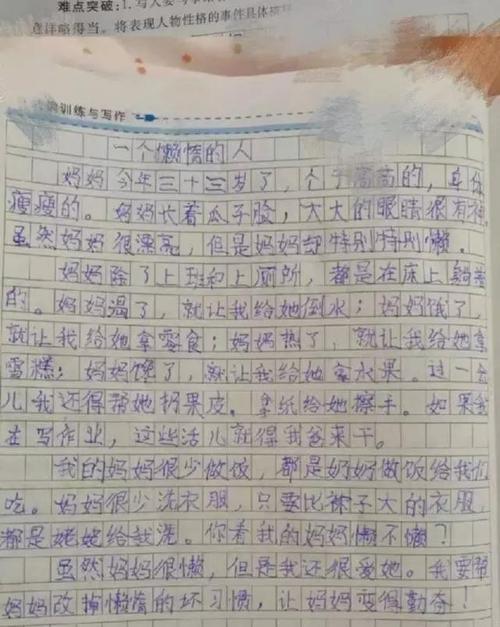 难点突破：1. 写人要
详略得当。将表现人物性格的事件具体
训练与写作
一个懒惰的人
妈妈今年三十三岁了，个子高高的，身体
瘦瘦的。妈妈长着瓜子脸，大大的眼睛很有神。
虽然妈妈很漂亮，但是妈妈却特别特别懒。
妈妈除了上班和上厕所，都是在床上躺着
的。妈妈渴了，就让我给她倒水；妈妈饿了，
就让我给她拿零食；妈妈热了，就让我给她拿
雪糕；妈妈馋了，就让我给她拿水果。过一会
儿我还得帮她扔果皮。拿纸给她擦手。如果我
在写作业，这些活儿就得我爸来干。
我的妈妈很少做饭，都是奶奶做饭给我们
吃。妈妈很少洗衣服，只要比袜子大的衣服
都是姥姥给我洗。你看我的妈妈懒不懒？
虽然妈妈很懒，但是我还很爱她。我要帮
妈妈改掉懒惰的坏习惯，让妈妈变得勤奋！